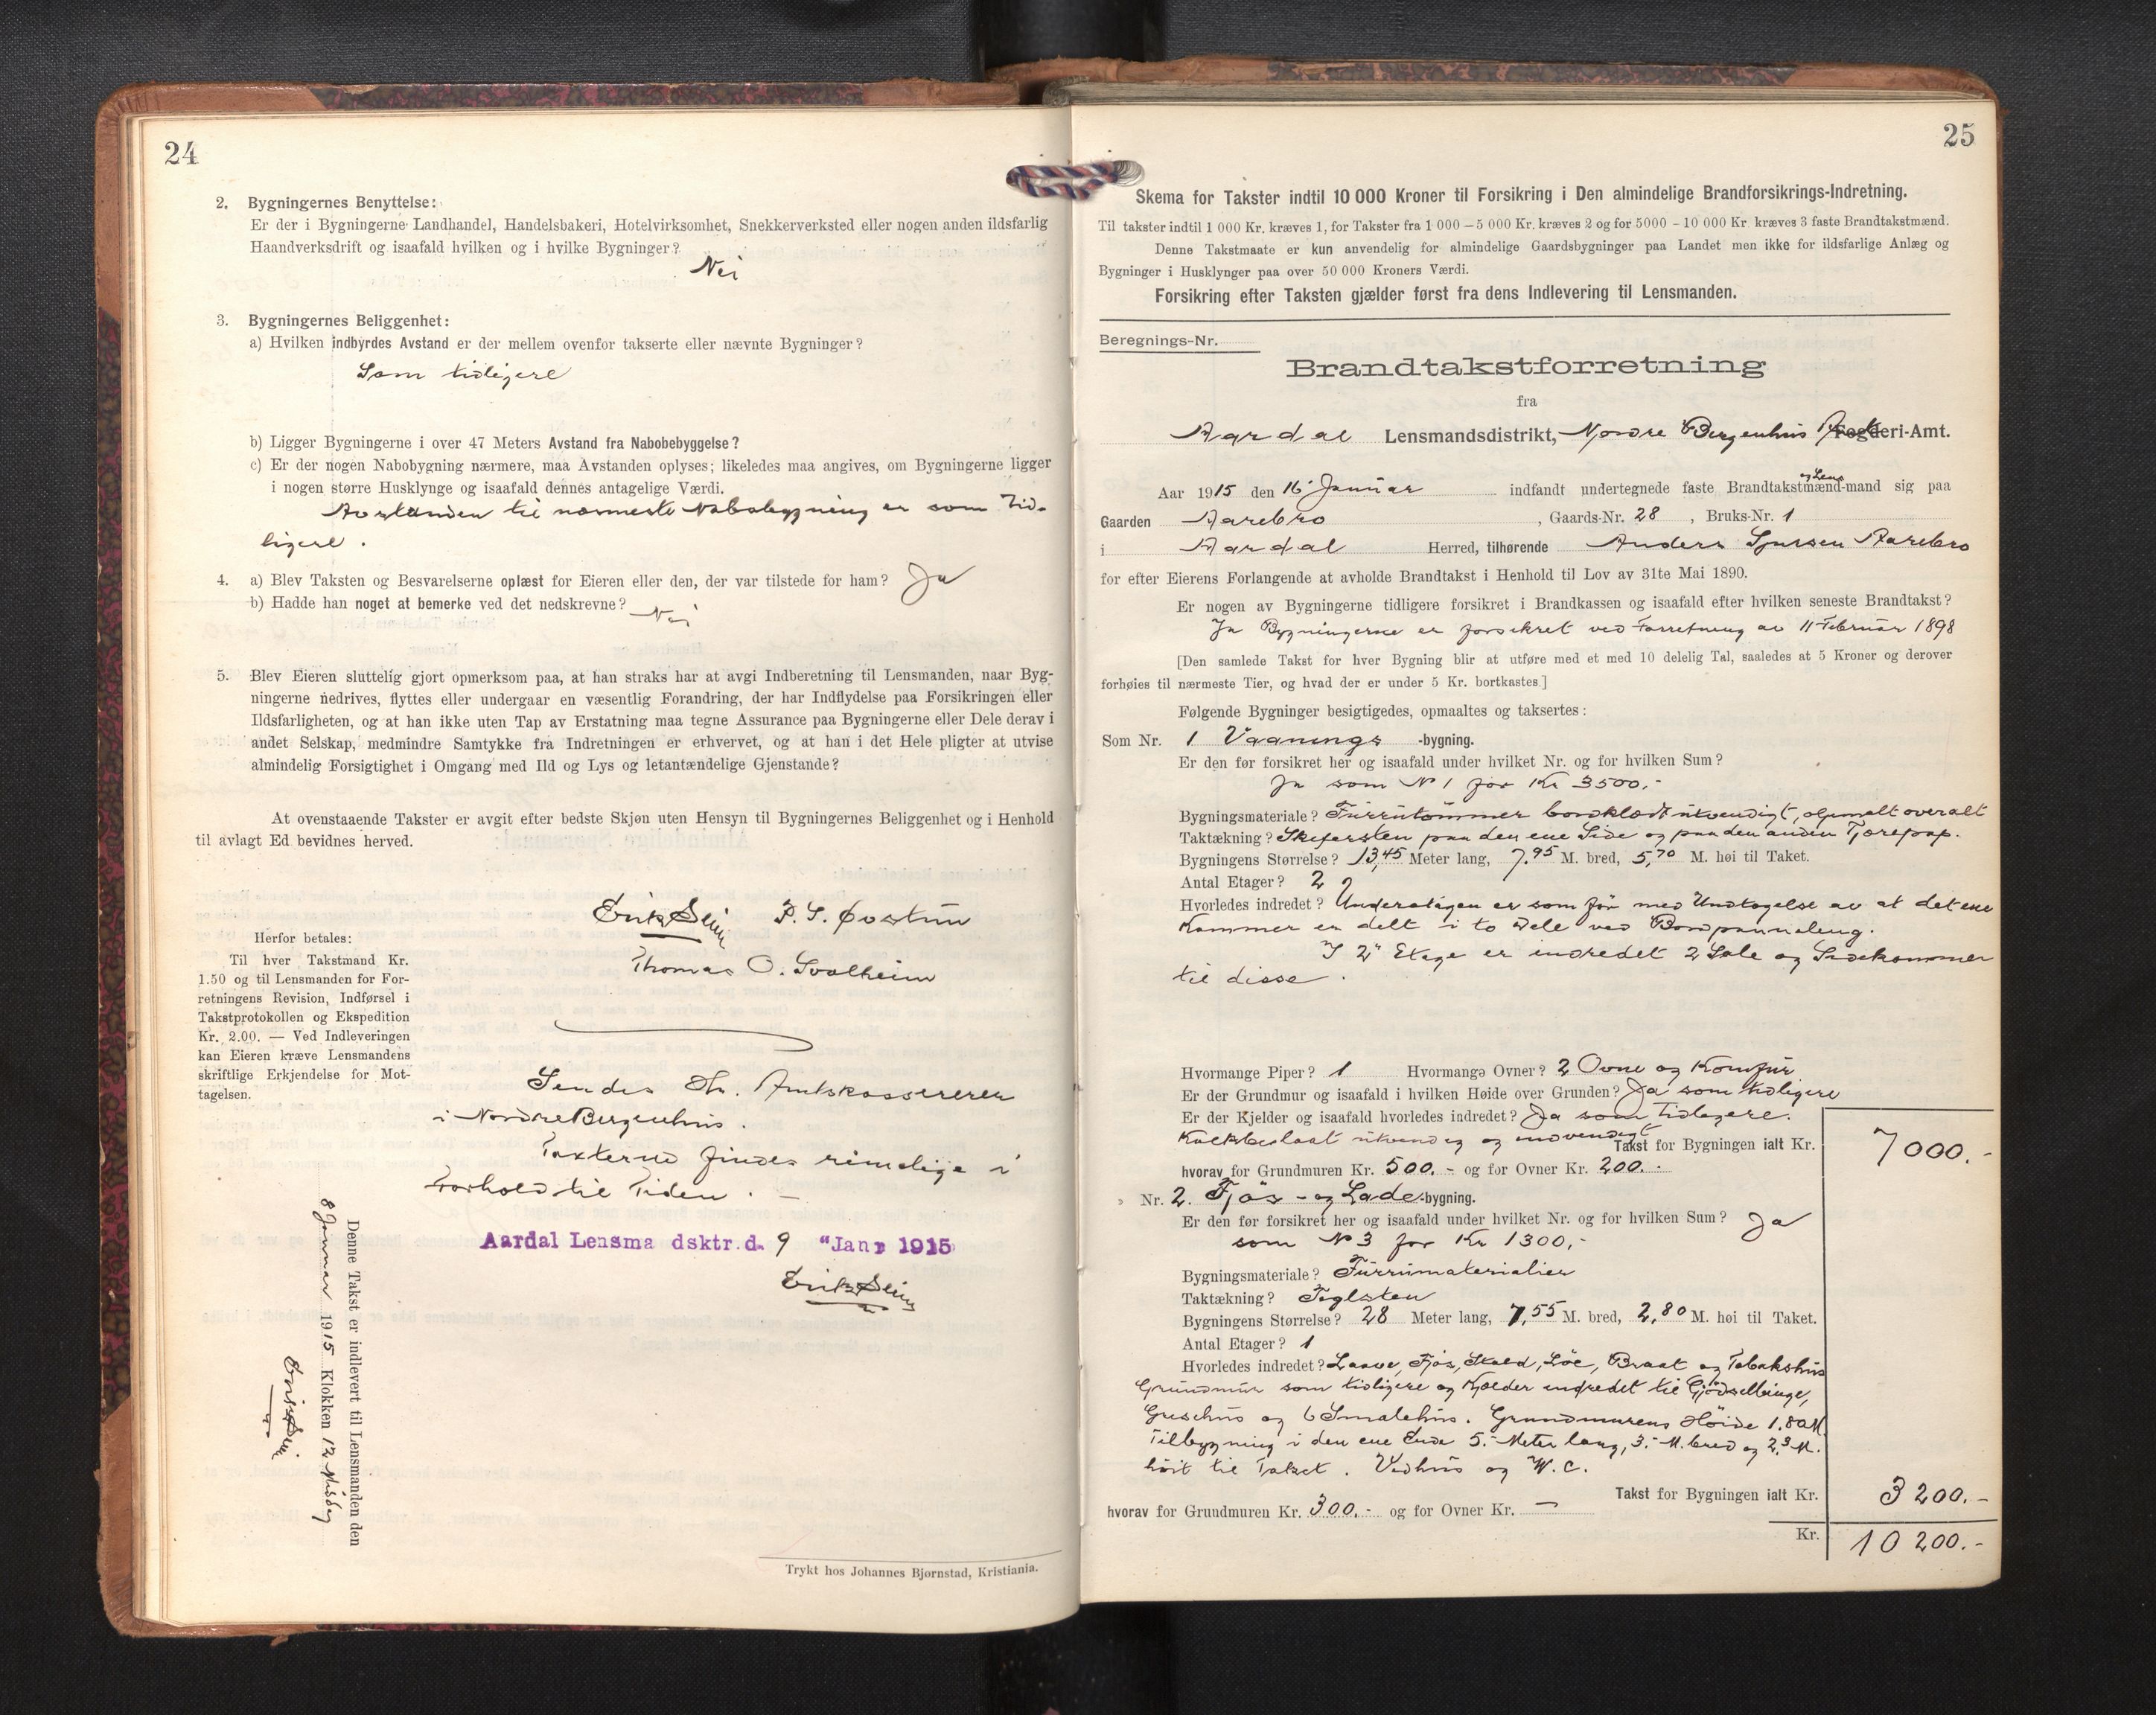 24
2. Bygningernes Benyttelse:
Er der i Bygningerne Landhandel, Handelsbakeri, Hotelvirksomhet, Snekkerverksted eller nogen anden ildsfarlig
Haandverksdrift og isaafald hvilken og i hvilke Bygninger?
Nei
3. Bygningernes Beliggenhet:
a) Hvilken indbyrdes Avstand er der mellem ovenfor takserte eller nævnte Bygninger?
Som tidligere
b) Ligger Bygningerne i over 47 Meters Avstand fra Nabobebyggelse?
c) Er der nogen Nabobygning nærmere, maa Avstanden oplyses; likeledes maa angives, om Bygningerne ligger
i nogen større Husklynge og isaafald dennes antagelige Værdi.
Avstanden til nærmeste Nabobygning er som Tid-
ligere.
4. a) Blev Taksten og Besvarelserne oplæst for Eieren eller den, der var tilstede for ham? Ja
b) Hadde han noget at bemerke ved det nedskrevne? Nei
5. Blev Eieren sluttelig gjort opmerksom paa, at han straks har at avgi Indberetning til Lensmanden, naar Byg-
ningerne nedrives, flyttes eller undergaar en væsentlig Forandring, der har Indflydelse paa Forsikringen eller
Ildsfarligheten, og at han ikke uten Tap av Erstatning maa tegne Assurance paa Bygningerne eller Dele derav i
andet Selskap, medmindre Samtykke fra Indretningen er erhvervet, og at han i det Hele pligter at utvise
almindelig Forsigtighet i Omgang med Ild og Lys og letantændelige Gjenstande?
At ovenstaaende Takster er avgit efter bedste Skjøn uten Hensyn til Bygningernes Beliggenhet og i Henhold
til avlagt Ed bevidnes herved.
Erik Seim P. S. Øvstun
Thomas O. Svalheim
Herfor betales:
Til hver Takstmand Kr.
1.50 og til Lensmanden for For-
retningens Revision, Indførsel i
Takstprotokollen og Ekspedition
Kr. 2.00. — Ved Indleveringen
kan Eieren kræve Lensmandens
skriftlige Erkjendelse for Mot-
tagelsen.
Sendes Hr. Amtskassereren
i Nordre Bergenhus.
Taxterne findes rimelige i
Forhold til Tiden. —
Aardal Lensma dsktr. d. 9 "Jan 1915
Erik Seim
Denne Takst er indlevert til Lensmanden den
8 Januar 1915 Klokken 12 Middag
Erik Seim
Trykt hos Johannes Bjørnstad, Kristiania.
25
Skema for Takster indtil 10 000 Kroner til Forsikring i Den almindelige Brandforsikrings-Indretning.
Til takster indtil 1 000 Kr. kræves 1, for Takster fra 1 000 — 5 000 Kr. kræves 2 og for 5000 - 10 000 Kr kræves 3 faste Brandtakstmænd.
Denne Takstmaate er kun anvendelig for almindelige Gaardsbygninger paa Landet men ikke for ildsfarlige Anlæg og
Bygninger i Husklynger paa over 50 000 Kroners Værdi.
Forsikring efter Taksten gjælder først fra dens Indlevering til Lensmanden.
Beregnings-Nr.
Brandtakstforretning
fra
Aardal Lensmandsdistrikt, Nordre Bergenhus Fogderi-Amt.
Aar 1915 den 16 Januar indfandt undertegnede faste Brandtakstmænd og Lens-mand sig paa
Gaarden Aarebro, Gaards-Nr. 28, Bruks-Nr. 1
i Aardal Herred, tilhørende Anders Sjursen Aarebro
for efter Eierens Forlangende at avholde Brandtakst i Henhold til Lov av 31te Mai 1890.
Er nogen av Bygningerne tidligere forsikret i Brandkassen og isaafald efter hvilken seneste Brandtakst?
Ja Bygningerne er forsikret ved Forretning av 11 Februar 1898
[Den samlede Takst for hver Bygning blir at utføre med et med 10 delelig Tal, saaledes at 5 Kroner og derover
forhøies til nærmeste Tier, og hvad der er under 5 Kr. bortkastes.]
Følgende Bygninger besigtigedes, opmaaltes og taksertes:
Som Nr. 1 Vaanings -bygning.
Er den før forsikret her og isaafald under hvilket Nr. og for hvilken Sum?
Ja som No 1 for Kr 3500.-
Bygningsmateriale? Furrutømmer bordklædt utvendigt, oljemalt overalt
Taktækning? Skifersten paa den ene Side og paa den anden Tjærepap.
Bygningens Størrelse? 13,45 Meter lang, 7,95 M. bred, 5,70 M. høi til Taket.
Antal Etager? 2
Hvorledes indredet? Underetagen er som før med Undtagelse av at det ene
Kammer er delt i to Dele ved Bordpanneling.
I 2' Etage er indredet 2 Sale og Sidekammer
til disse.
Hvormange Piper? 1 Hvormange Ovner? 2 Ovne og Komfur
Er der Grundmur og isaafald i hvilken Høide over Grunden? Ja som tidligere
Er der Kjelder og isaafald hvorledes indredet? Ja som tidligere.
Kalkbeslaat utvendig og indvendigt
Takst for Bygningen ialt Kr. 7000.-
hvorav for Grundmuren Kr. 500.- og for Ovner Kr. 200.-
" Nr. 2. Fjøs- og Lade-bygning.
Er den før forsikret her og isaafald under hvilket Nr. og for hvilken Sum? Ja
som No 3 for Kr 1300,-
Bygningsmateriale? Furrumaterialier
Taktækning? Teglsten
Bygningens Størrelse? 28 Meter lang, 7,55 M. bred, 2,80 M. høi til Taket.
Antal Etager? 1
Hvorledes indredet? Laave, Fjøs, Stald, Løe, Braat og Tobakshus
Grundmur som tidligere og Kjælder indredet til Gjødselbinge,
Grisehus og 6 Smalehus. Grundmurens Høide 1.80 M.
Tilbygning i den ene Ende 5.- Meter lang, 3.- M. bred og 2,3 M.
høit til Taket. Vedhus og W.C.
Takst for Bygningen ialt Kr. 3200.-
hvorav for Grundmuren Kr. 300.- og for Ovner Kr. —
Kr. 10200.-